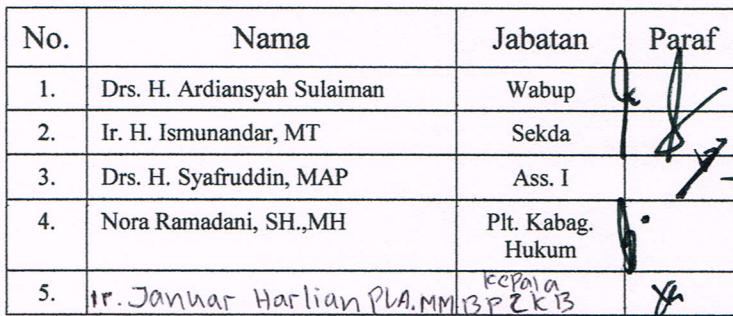 No. Nama Jabatan Paraf
1. Drs. H. Ardiansyah Sulaiman Wabup
2. Ir. H. Ismunandar, MT Sekda
3. Drs. H. Syafruddin, MAP Ass. I
4. Nora Ramadani, SH.,MH Plt. Kabag.
Hukum
5. Ir. Januar Harlian PLA.MM Kepala
BP2KB